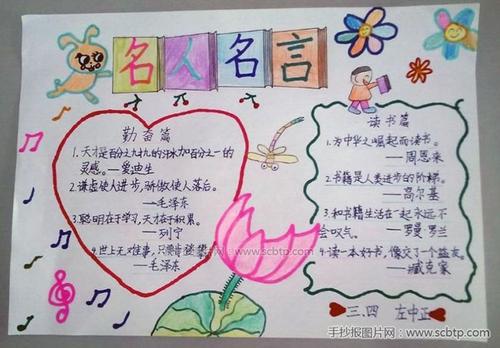 名人名言
勤奋篇
1.天才是百分之九十九的汗水加百分之一的
灵感。——爱迪生
2.谦虚使人进步,骄傲使人落后。
——毛泽东
3.聪明在于学习,天才在于积累。
——列宁
4.世上无难事,只要肯登攀
——毛泽东
读书篇
1.为中华之崛起而读书。
——周恩来
2.书籍是人类进步的阶梯。
——高尔基
3.和书籍生活在一起,永远不
会叹气。——罗曼·罗兰
4.读一本好书,像交了个益友。
——臧克家
三.四 左中正
www.scbtp.com
手抄报图片网:www.scbtp.com